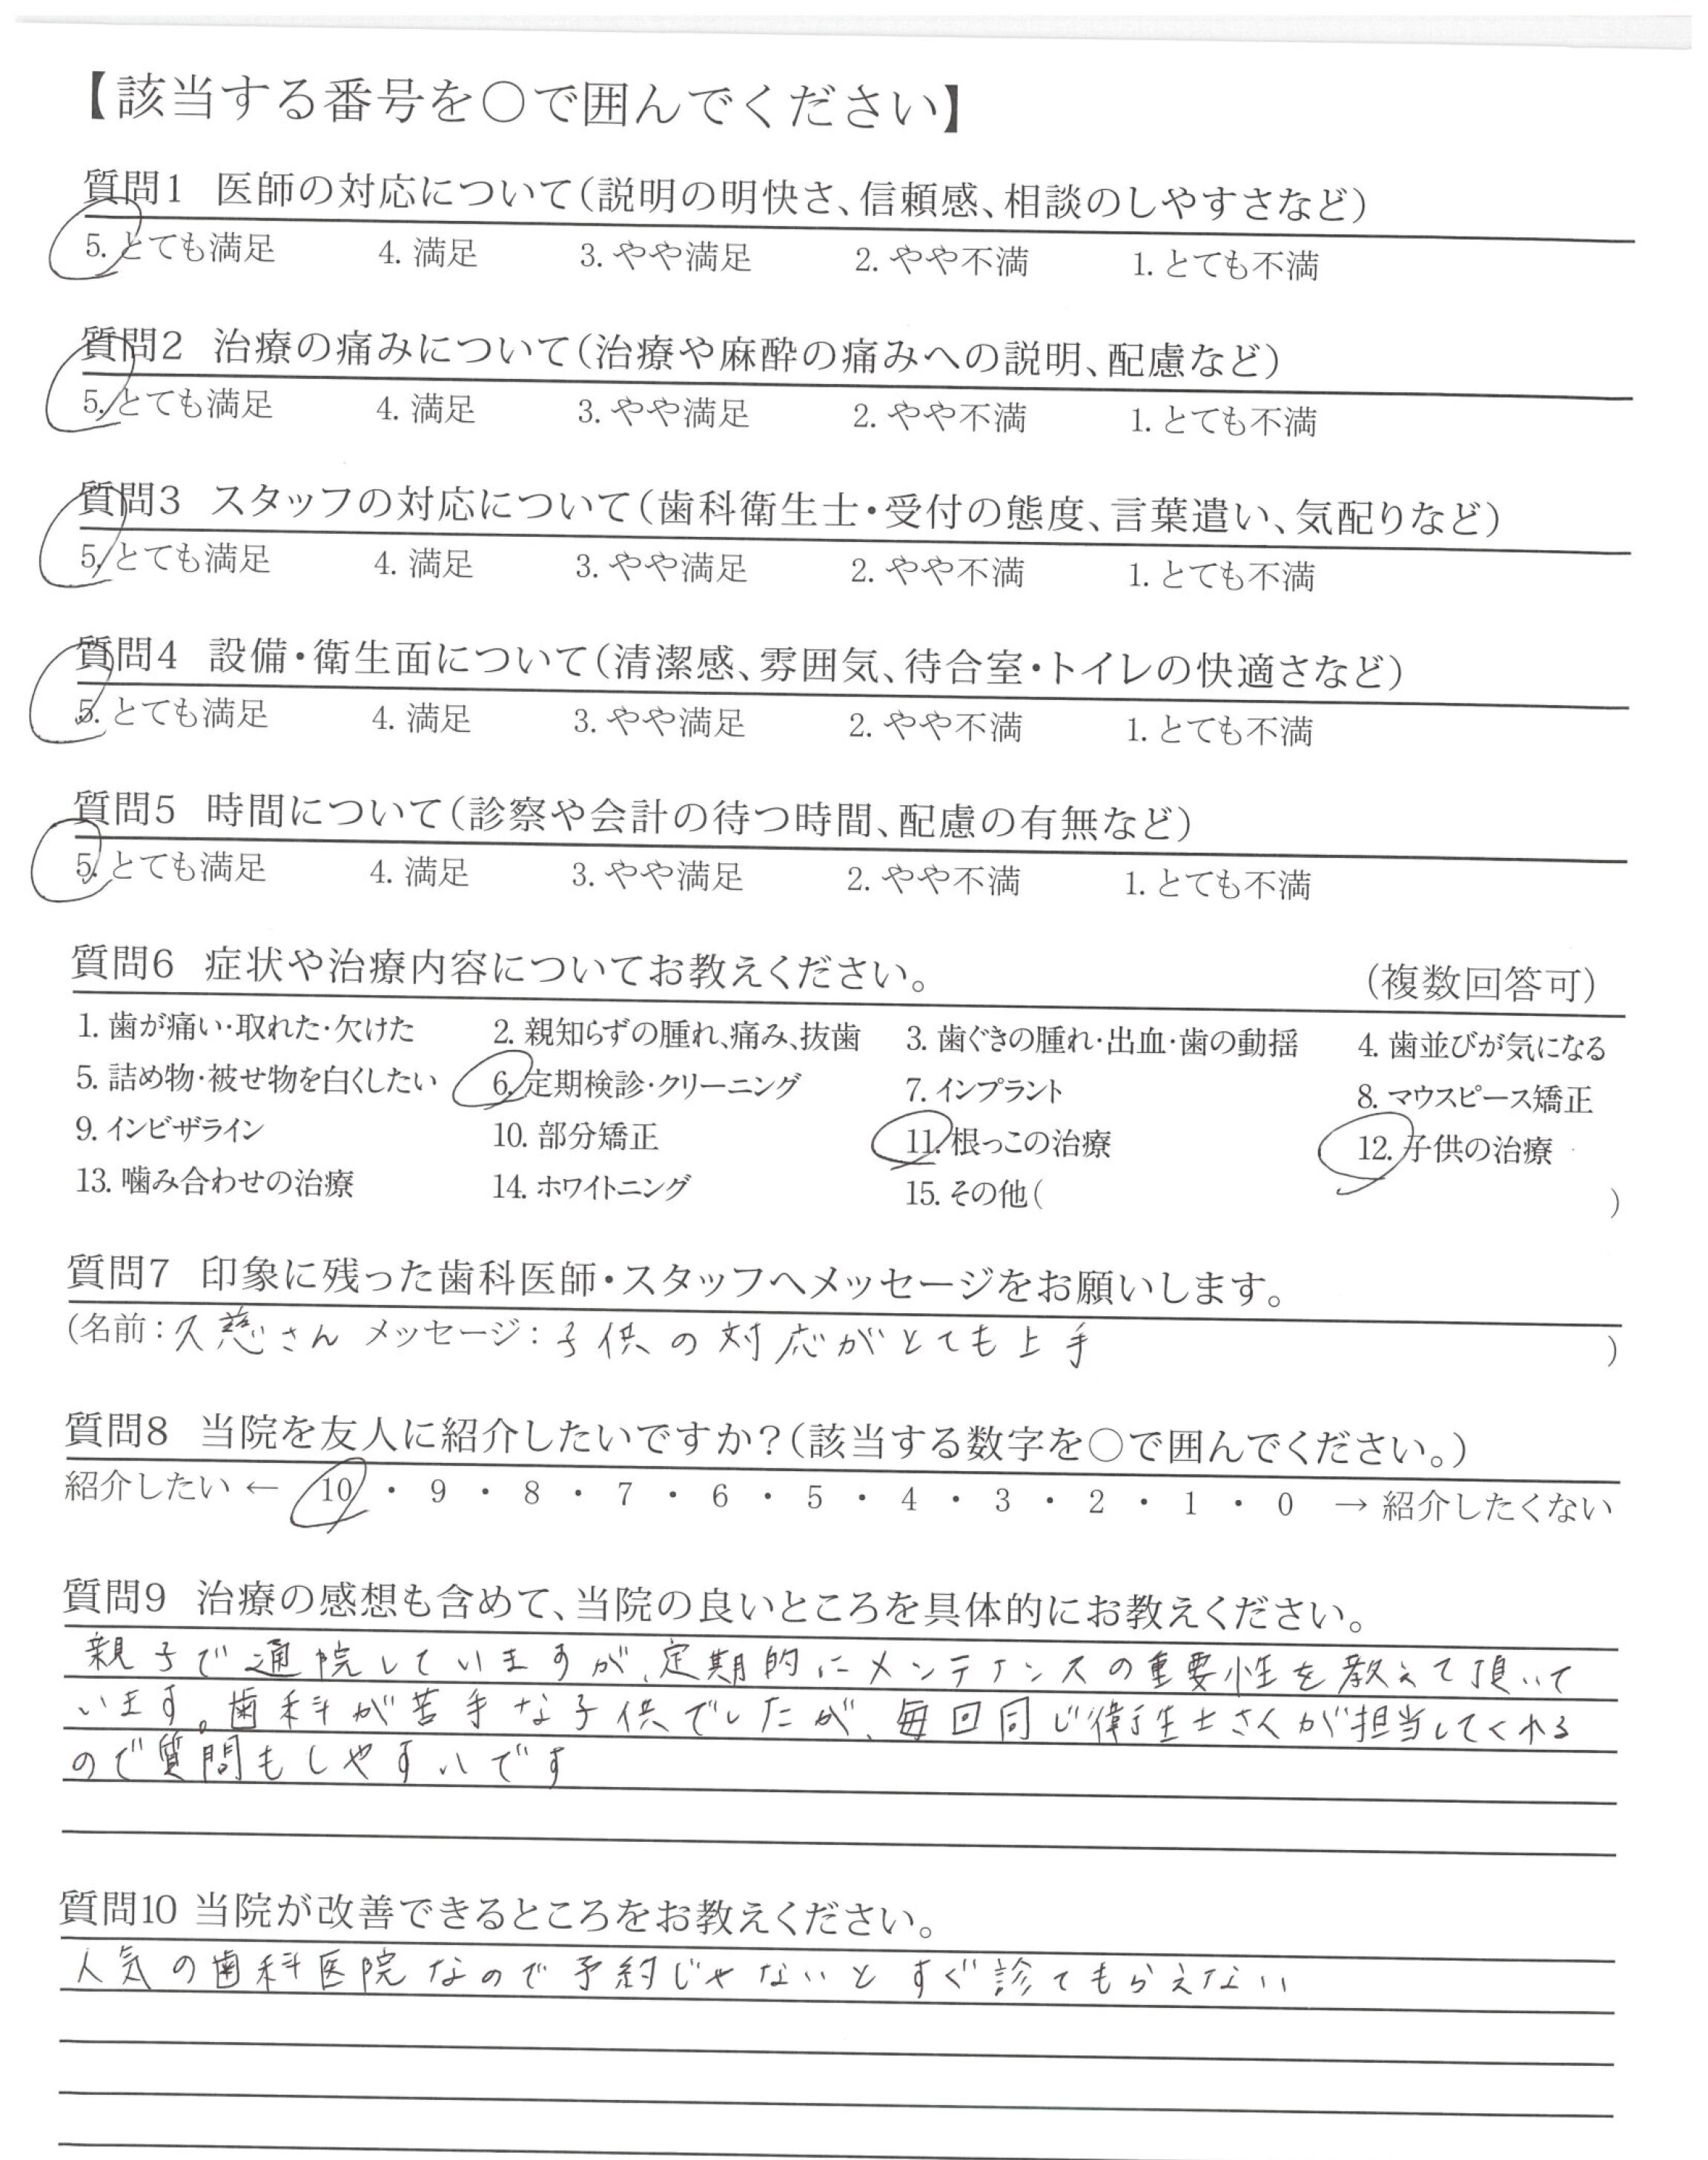 【該当する番号を○で囲んでください】
質問1 医師の対応について(説明の明快さ、信頼感、相談のしやすさなど)
5. とても満足 4. 満足 3. やや満足 2. やや不満 1. とても不満
質問2 治療の痛みについて(治療や麻酔の痛みへの説明、配慮など)
5. とても満足 4. 満足 3. やや満足 2. やや不満 1. とても不満
質問3 スタッフの対応について(歯科衛生士・受付の態度、言葉遣い、気配りなど)
5. とても満足 4. 満足 3. やや満足 2. やや不満 1. とても不満
質問4 設備・衛生面について(清潔感、雰囲気、待合室・トイレの快適さなど)
5. とても満足 4. 満足 3. やや満足 2. やや不満 1. とても不満
質問5 時間について(診察や会計の待つ時間、配慮の有無など)
5. とても満足 4. 満足 3. やや満足 2. やや不満 1. とても不満
質問6 症状や治療内容についてお教えください。 (複数回答可)
1. 歯が痛い・取れた・欠けた 2. 親知らずの腫れ、痛み、抜歯 3. 歯ぐきの腫れ・出血・歯の動揺 4. 歯並びが気になる
5. 詰め物・被せ物を白くしたい 6. 定期検診・クリーニング 7. インプラント 8. マウスピース矯正
9. インビザライン 10. 部分矯正 11. 根っこの治療 12. 子供の治療
13. 噛み合わせの治療 14. ホワイトニング 15. その他( )
質問7 印象に残った歯科医師・スタッフへメッセージをお願いします。
(名前：久慈さん メッセージ：子供の対応がとても上手 )
質問8 当院を友人に紹介したいですか？(該当する数字を○で囲んでください。)
紹介したい ← 10 ・ 9 ・ 8 ・ 7 ・ 6 ・ 5 ・ 4 ・ 3 ・ 2 ・ 1 ・ 0 → 紹介したくない
質問9 治療の感想も含めて、当院の良いところを具体的にお教えください。
親子で通院していますが、定期的にメンテナンスの重要性を教えて頂いて
います。歯科が苦手な子供でしたが、毎回同じ衛生士さんが担当してくれる
ので質問もしやすいです
質問10 当院が改善できるところをお教えください。
人気の歯科医院なので予約じゃないとすぐ診てもらえない